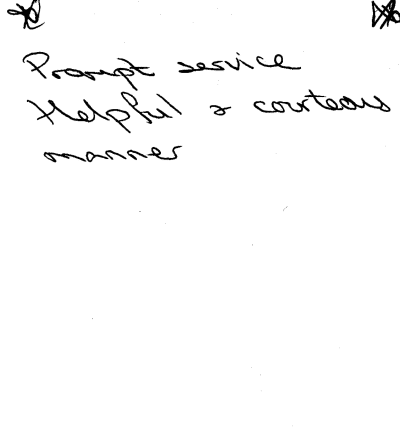 Prompt service
Helpful & courteous
manner